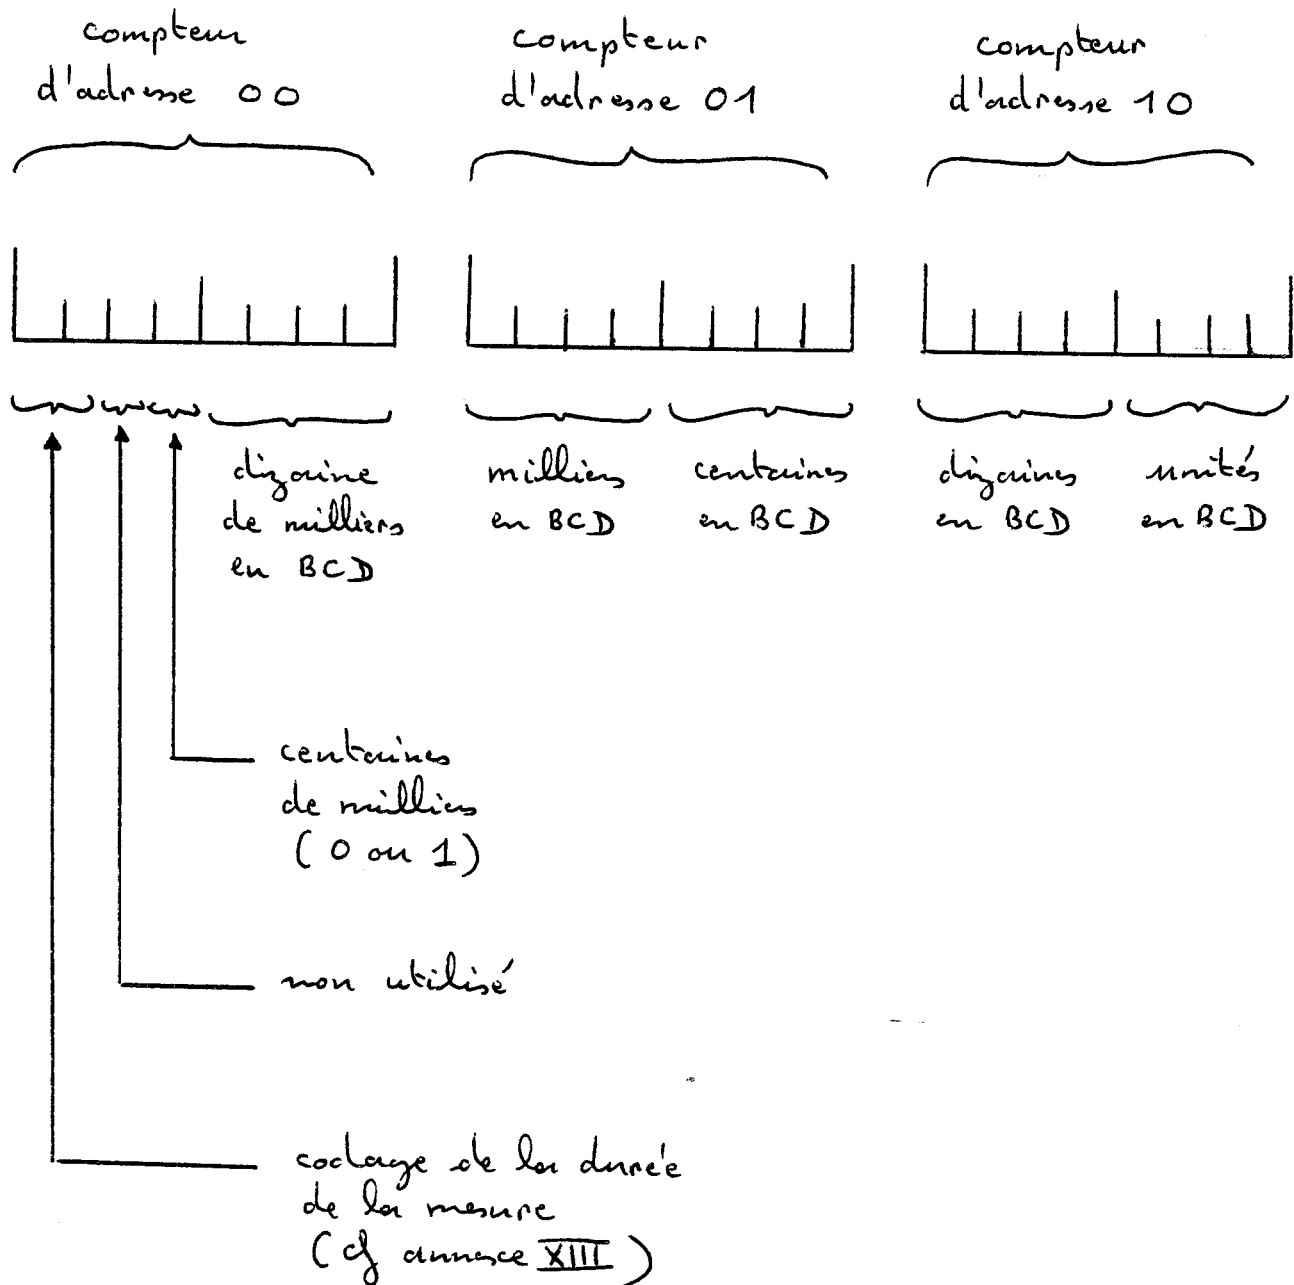 compteur
d'adresse 00
compteur
d'adresse 01
compteur
d'adresse 10
dizaine
de milliers
en BCD
milliers
en BCD
centaines
en BCD
dizaines
en BCD
unités
en BCD
centaines
de milliers
(0 ou 1)
non utilisé
codage de la durée
de la mesure
(cf annexe XIII)